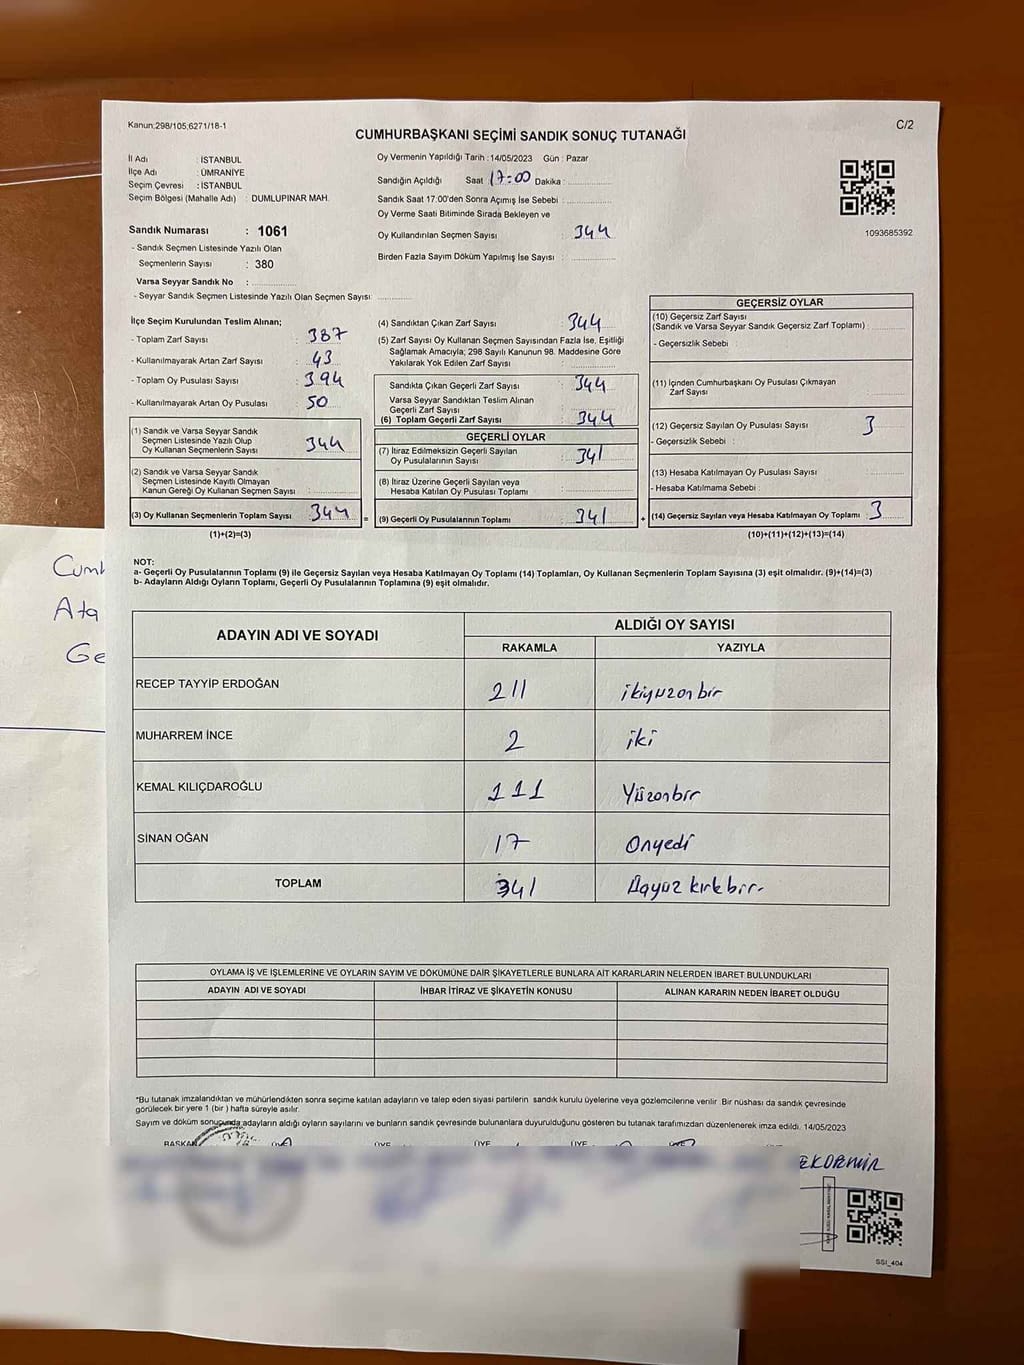 Kanun:298/105,6271/18-1
C/2
CUMHURBAŞKANI SEÇİMİ SANDIK SONUÇ TUTANAĞI
İl Adı : İSTANBUL
İlçe Adı : ÜMRANİYE
Seçim Çevresi : İSTANBUL
Seçim Bölgesi (Mahalle Adı) : DUMLUPINAR MAH.
Sandık Numarası : 1061
- Sandık Seçmen Listesinde Yazılı Olan
Seçmenlerin Sayısı : 380
Varsa Seyyar Sandık No :
- Seyyar Sandık Seçmen Listesinde Yazılı Olan Seçmen Sayısı:
Oy Vermenin Yapıldığı Tarih : 14/05/2023 Gün : Pazar
Sandığın Açıldığı Saat 17:00 Dakika :
Sandık Saat 17.00'den Sonra Açımış İse Sebebi :
Oy Verme Saati Bitiminde Sırada Bekleyen ve
Oy Kullandırılan Seçmen Sayısı : 344
Birden Fazla Sayım Döküm Yapılmış İse Sayısı :
1093685392
İlçe Seçim Kurulundan Teslim Alınan;
- Toplam Zarf Sayısı : 387
- Kullanılmayarak Artan Zarf Sayısı : 43
- Toplam Oy Pusulası Sayısı : 394
- Kullanılmayarak Artan Oy Pusulası : 50
(1) Sandık ve Varsa Seyyar Sandık
Seçmen Listesinde Yazılı Olup
Oy Kullanan Seçmenlerin Sayısı : 344
(2) Sandık ve Varsa Seyyar Sandık
Seçmen Listesinde Kayıtlı Olmayan
Kanun Gereği Oy Kullanan Seçmen Sayısı :
(3) Oy Kullanan Seçmenlerin Toplam Sayısı : 344
(1)+(2)=(3)
(4) Sandıktan Çıkan Zarf Sayısı : 344
(5) Zarf Sayısı Oy Kullanan Seçmen Sayısından Fazla İse, Eşitliği
Sağlamak Amacıyla; 298 Sayılı Kanunun 98. Maddesine Göre
Yakılarak Yok Edilen Zarf Sayısı :
Sandıkta Çıkan Geçerli Zarf Sayısı : 344
Varsa Seyyar Sandıktan Teslim Alınan
Geçerli Zarf Sayısı :
(6) Toplam Geçerli Zarf Sayısı : 344
GEÇERLİ OYLAR
(7) İtiraz Edilmeksizin Geçerli Sayılan
Oy Pusulalarının Sayısı : 341
(8) İtiraz Üzerine Geçerli Sayılan veya
Hesaba Katılan Oy Pusulası Toplamı :
= (9) Geçerli Oy Pusulalarının Toplamı : 341 +
GEÇERSİZ OYLAR
(10) Geçersiz Zarf Sayısı
(Sandık ve Varsa Seyyar Sandık Geçersiz Zarf Toplamı) :
- Geçersizlik Sebebi :
(11) İçinden Cumhurbaşkanı Oy Pusulası Çıkmayan
Zarf Sayısı :
(12) Geçersiz Sayılan Oy Pusulası Sayısı : 3
- Geçersizlik Sebebi :
(13) Hesaba Katılmayan Oy Pusulası Sayısı :
- Hesaba Katılmama Sebebi :
(14) Geçersiz Sayılan veya Hesaba Katılmayan Oy Toplamı : 3
(10)+(11)+(12)+(13)=(14)
NOT:
a- Geçerli Oy Pusulalarının Toplamı (9) ile Geçersiz Sayılan veya Hesaba Katılmayan Oy Toplamı (14) Toplamları, Oy Kullanan Seçmenlerin Toplam Sayısına (3) eşit olmalıdır. (9)+(14)=(3)
b- Adayların Aldığı Oyların Toplamı, Geçerli Oy Pusulalarının Toplamına (9) eşit olmalıdır.
ADAYIN ADI VE SOYADI
ALDIĞI OY SAYISI
RAKAMLA YAZIYLA
RECEP TAYYİP ERDOĞAN 211 ikiyüzonbir
MUHARREM İNCE 2 iki
KEMAL KILIÇDAROĞLU 111 Yüzonbir
SİNAN OĞAN 17 Onyedi
TOPLAM 341 kırkbir
OYLAMA İŞ VE İŞLEMLERİNE VE OYLARIN SAYIM VE DÖKÜMÜNE DAİR ŞİKAYETLERLE BUNLARA AİT KARARLARIN NELERDEN İBARET BULUNDUKLARI
ADAYIN ADI VE SOYADI İHBAR İTİRAZ VE ŞİKAYETİN KONUSU ALINAN KARARIN NEDEN İBARET OLDUĞU
*Bu tutanak imzalandıktan ve mühürlendikten sonra seçime katılan adayların ve talep eden siyasi partilerin sandık kurulu üyelerine veya gözlemcilerine verilir. Bir nüshası da sandık çevresinde
görülecek bir yere 1 (bir ) hafta süreyle asılır.
Sayım ve döküm sonucunda adayların aldığı oyların sayılarını ve bunların sandık çevresinde bulunanlara duyurulduğunu gösteren bu tutanak tarafımızdan düzenlenerek imza edildi. 14/05/2023
BAŞKAN ÜYE ÜYE ÜYE
SSI_404
Cumh
Ata
Ge